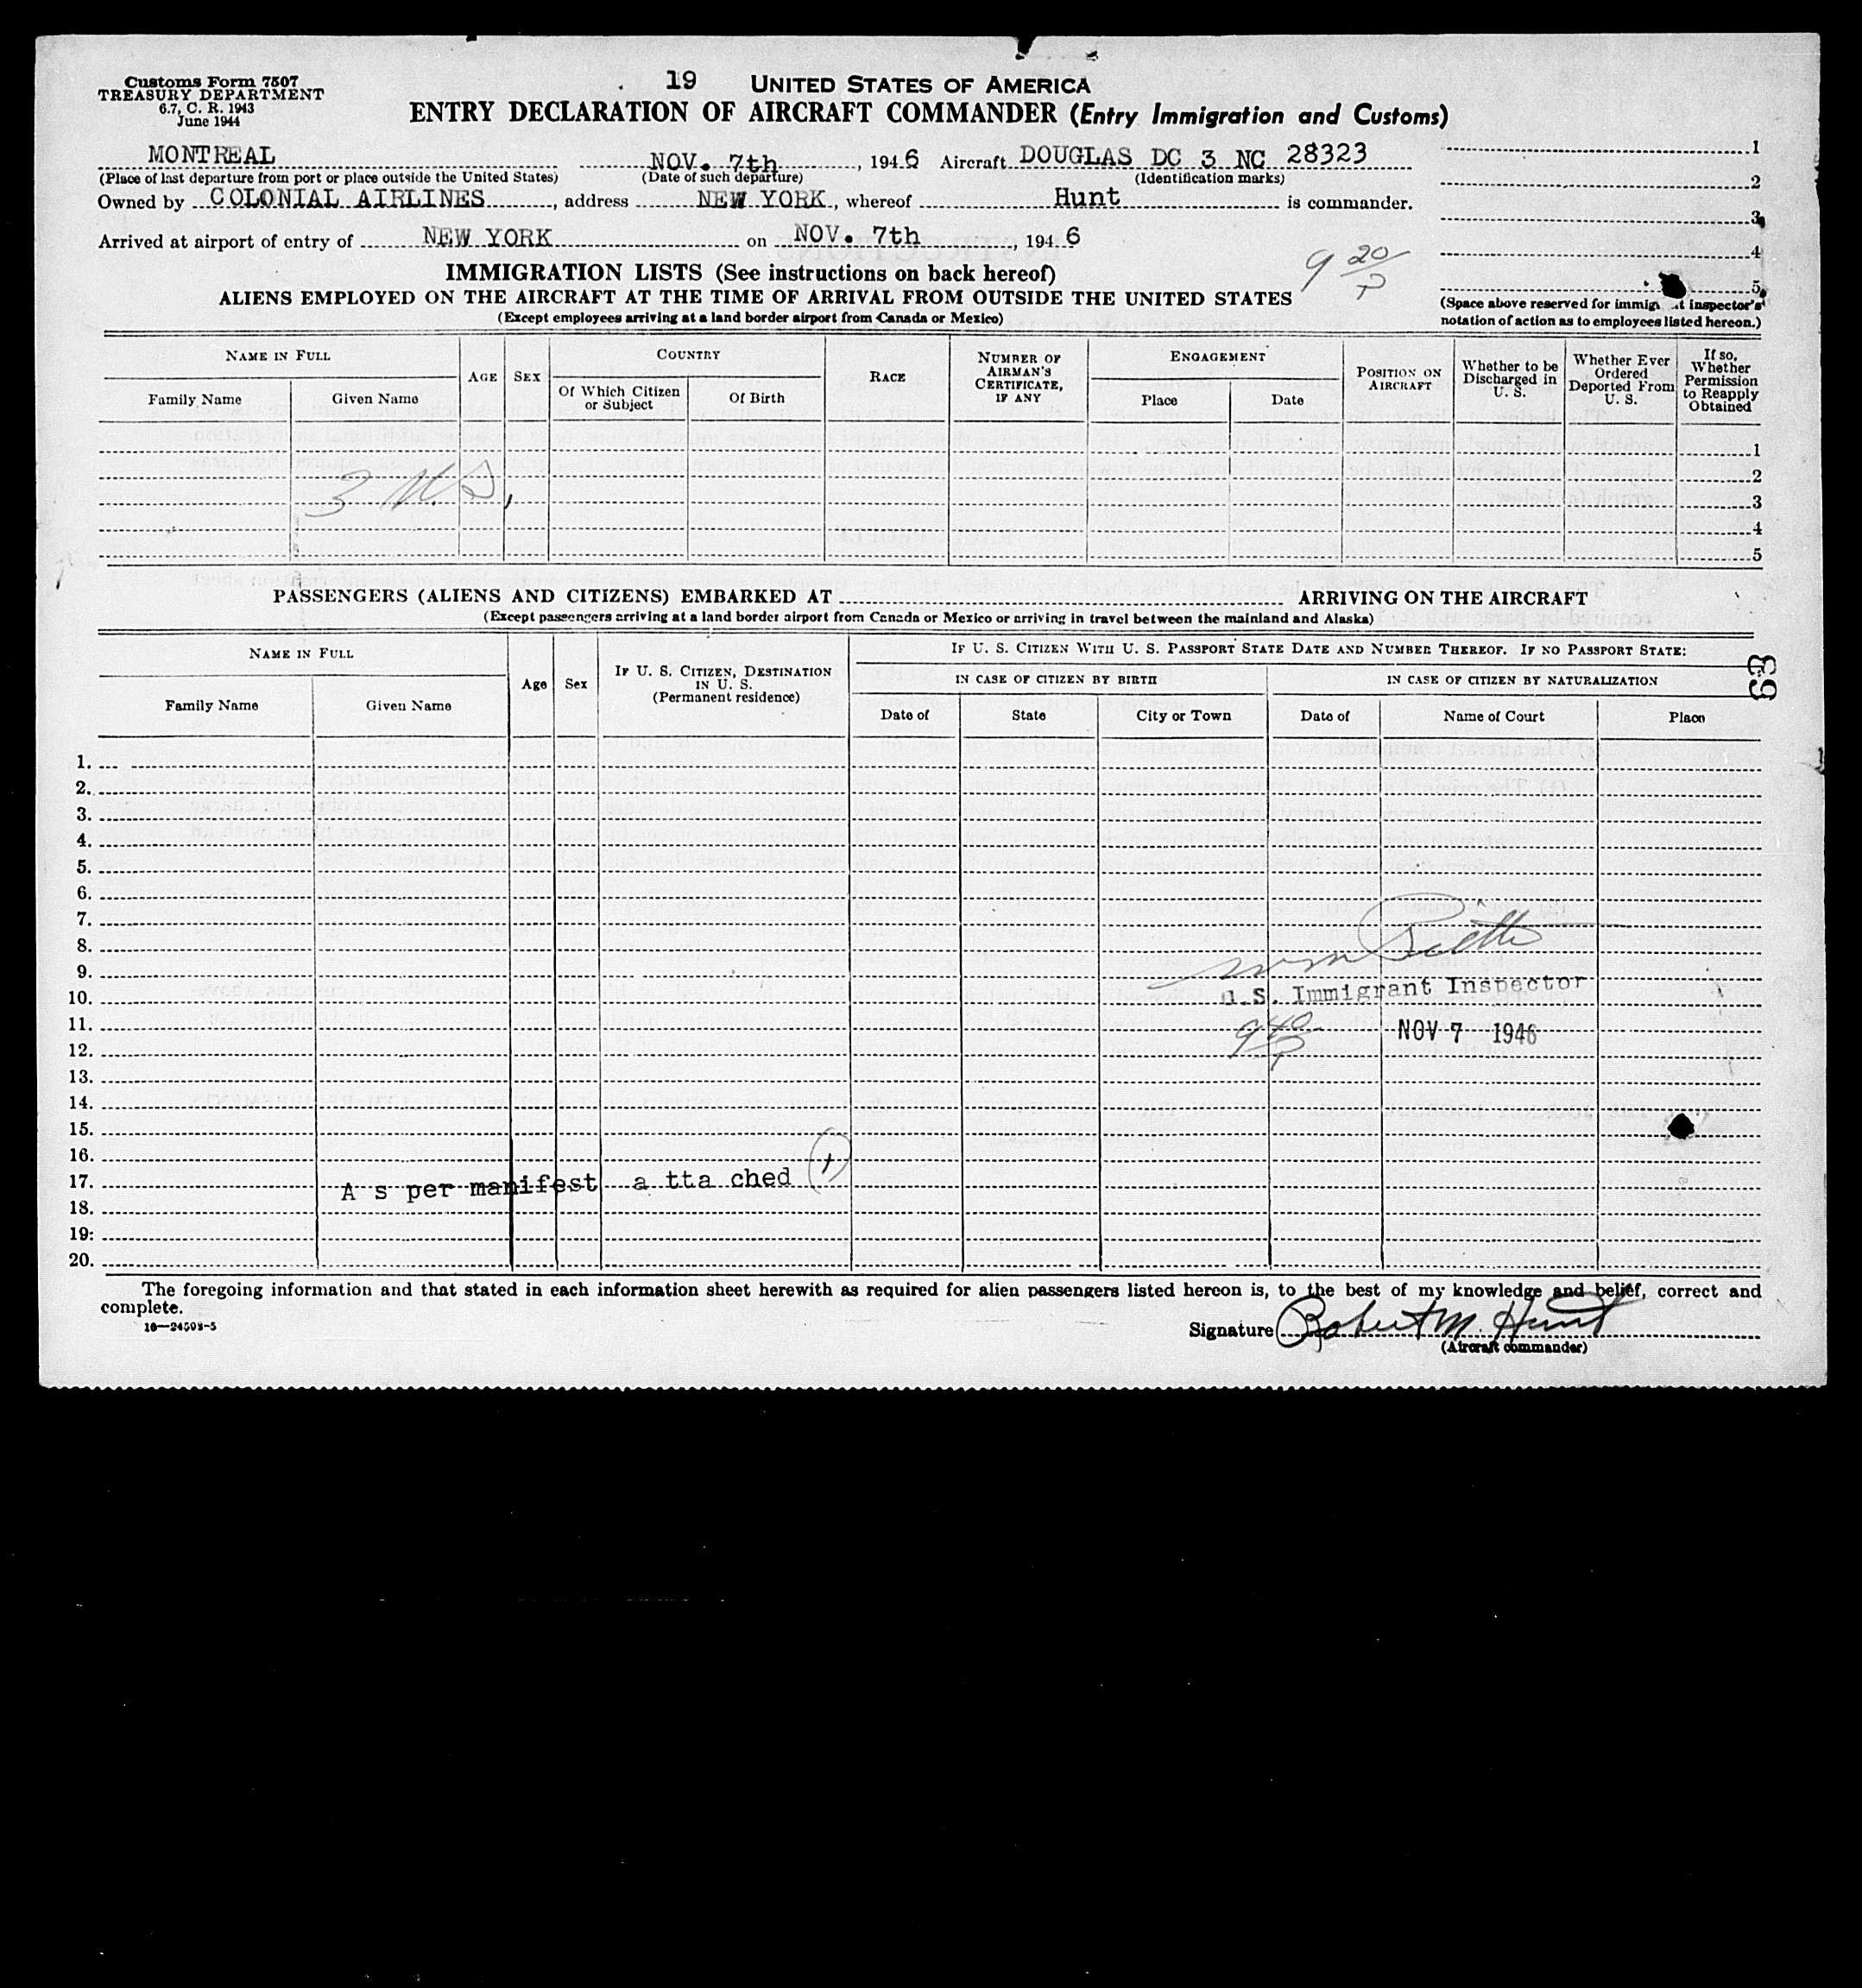 Customs Form 7507
TREASURY DEPARTMENT
6.7, C. R. 1943
June 1944
19 UNITED STATES OF AMERICA
ENTRY DECLARATION OF AIRCRAFT COMMANDER (Entry Immigration and Customs)
MONTREAL NOV. 7th, 1946 Aircraft DOUGLAS DC 3 NC 28323
(Place of last departure from port or place outside the United States) (Date of such departure) (Identification marks)
Owned by COLONIAL AIRLINES, address NEW YORK, whereof Hunt is commander.
Arrived at airport of entry of NEW YORK on NOV. 7th, 1946
1
2
3
4
5
(Space above reserved for immig t inspector's
notation of action as to employees listed hereon.)
9 20/P
IMMIGRATION LISTS (See instructions on back hereof)
ALIENS EMPLOYED ON THE AIRCRAFT AT THE TIME OF ARRIVAL FROM OUTSIDE THE UNITED STATES
(Except employees arriving at a land border airport from Canada or Mexico)
NAME IN FULL
Family Name
Given Name
AGE
SEX
COUNTRY
Of Which Citizen
or Subject
Of Birth
RACE
NUMBER OF
AIRMAN'S
CERTIFICATE,
IF ANY
ENGAGEMENT
Place
Date
POSITION ON
AIRCRAFT
Whether to be
Discharged in
U. S.
Whether Ever
Ordered
Deported From
U. S.
If so,
Whether
Permission
to Reapply
Obtained
1
2
3 U.S,
3
4
5
PASSENGERS (ALIENS AND CITIZENS) EMBARKED AT ARRIVING ON THE AIRCRAFT
(Except passengers arriving at a land border airport from Canada or Mexico or arriving in travel between the mainland and Alaska)
NAME IN FULL
Family Name
Given Name
Age
Sex
IF U. S. CITIZEN, DESTINATION
IN U. S.
(Permanent residence)
IF U. S. CITIZEN WITH U. S. PASSPORT STATE DATE AND NUMBER THEREOF. IF NO PASSPORT STATE:
IN CASE OF CITIZEN BY BIRTH
Date of
State
City or Town
IN CASE OF CITIZEN BY NATURALIZATION
Date of
Name of Court
Place
63
1.
2.
3.
4.
5.
6.
7.
8.
9.
10. U.S. Immigrant Inspector
11. 9 40/P NOV 7 1946
12.
13.
14.
15.
16.
17. A s per manifest a tta ched (1)
18.
19.
20.
The foregoing information and that stated in each information sheet herewith as required for alien passengers listed hereon is, to the best of my knowledge and belief, correct and
complete.
16—24598-5
Signature Robert M. Hunt
(Aircraft commander)